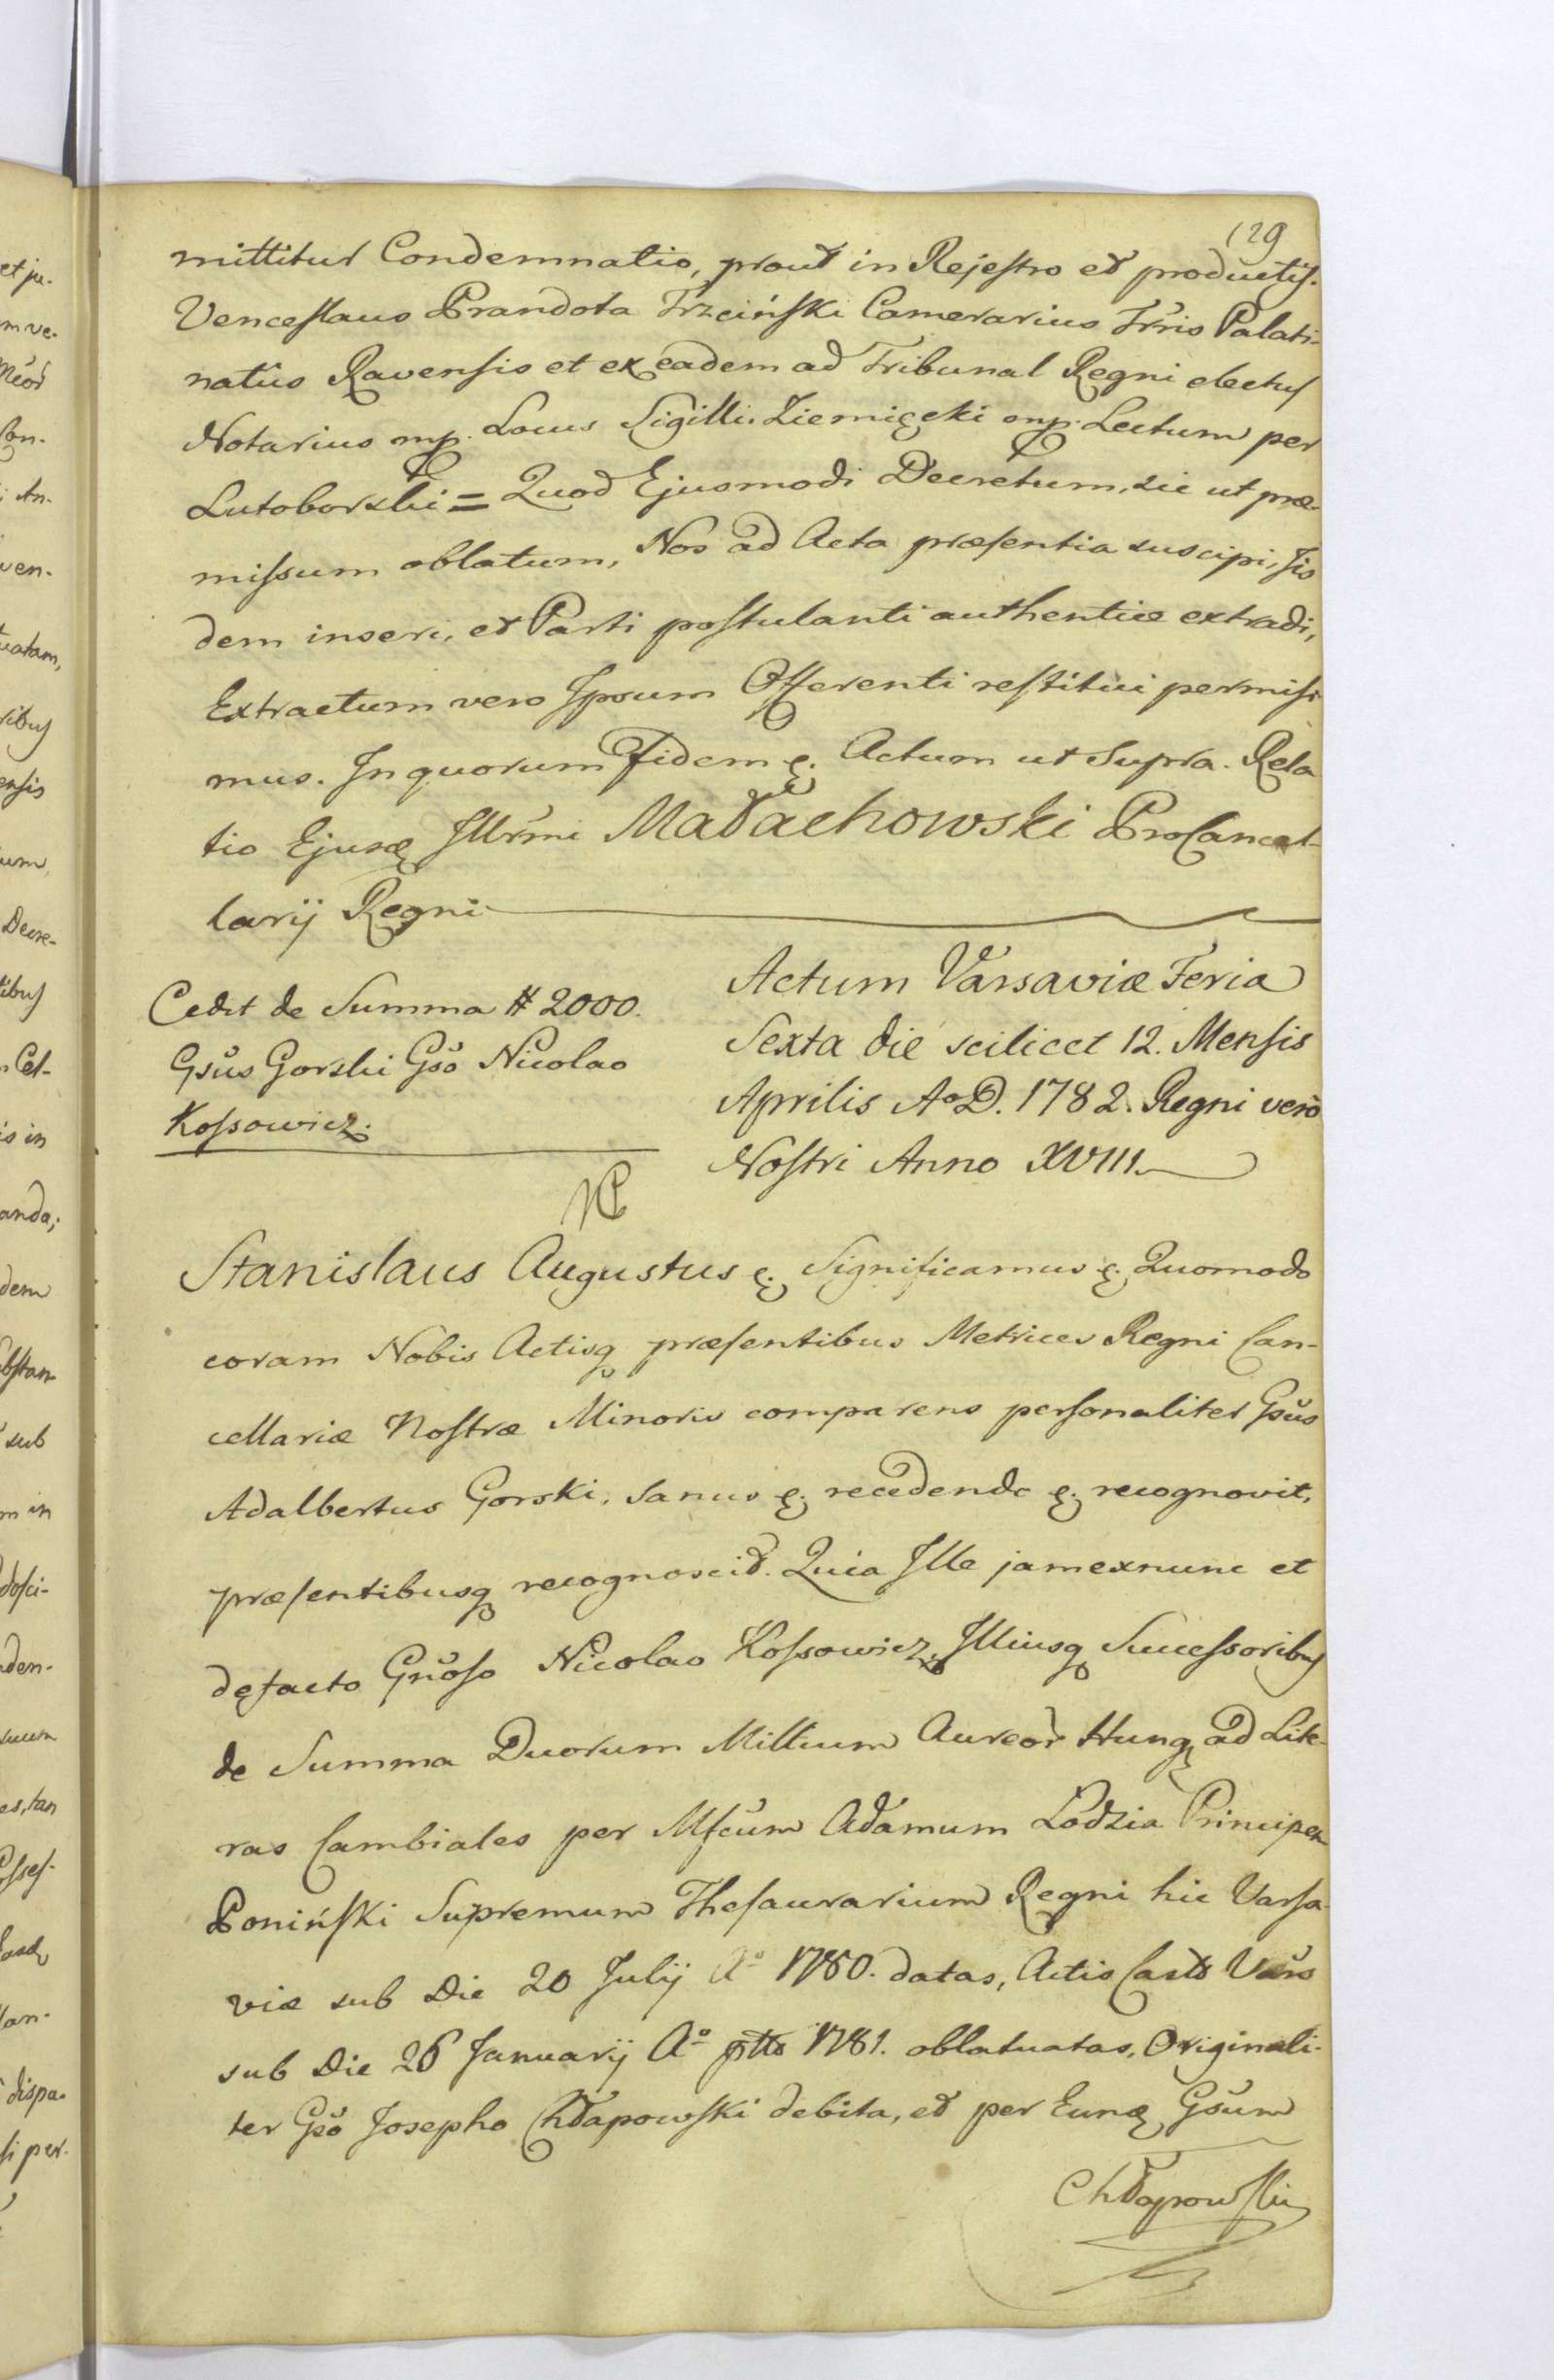 129
mittitur Condemnatio, prout in Rejestro et productis.
Venceslaus Prandota Trzciński Camerarius Trris Palati-
natûs Ravensis et ex eadem ad Tribunal Regni electus
Notarius mp. Locus Sigilli. Ziemięcki mp. Lectum per
Lutoborski = Quod Ejusmodi Decretum, sic ut præ-
missum oblatum, Nos ad Acta præsentia suscipi, Iis
dem inseri, et Parti postulanti authenticè extradi,
Extractum vero Ipsum Offerenti restitui permisi
mus. In quorum Fidem &. Actum ut Supra. Rela
tio Ejusq Illrmi Małachowski ProCancel-
larij Regni
Cedit de Summa # 2000.
Gsus Gorski Gso Nicolao
Kossowicz.
Actum Varsaviæ Feria
Sexta die scilicet 12. Mensis
Aprilis Ao D. 1782. Regni verò
Nostri Anno XVIII.
Stanislaus Augustus &. Significamus &. Quomodo
coram Nobis Actisq præsentibus Metrices Regni Can-
cellariæ Nostræ Minoris comparens personaliter Gsus
Adalbertus Gorski, sanus &. recedendo &. recognovit,
præsentibusq recognoscit. Quia Ille jamexnunc et
defacto Gnoso Nicolao Kossowicz, Illiusq Successoribus
de Summa Duorum Millium Aureor Hung, ad Lite-
ras Cambiales per Mfcum Adamum Lodzia Principem
Poniński Supremum Thesaurarium Regni hic Varsa-
viæ sub Die 20 Julij Ao 1780. datas, Actis Casts Vars
sub Die 26 Januarij Ao ptto 1781. oblatuatas, Originali-
ter Gso Josepho Chłapowski debita, et per Eunq Gsum
Chłapowski